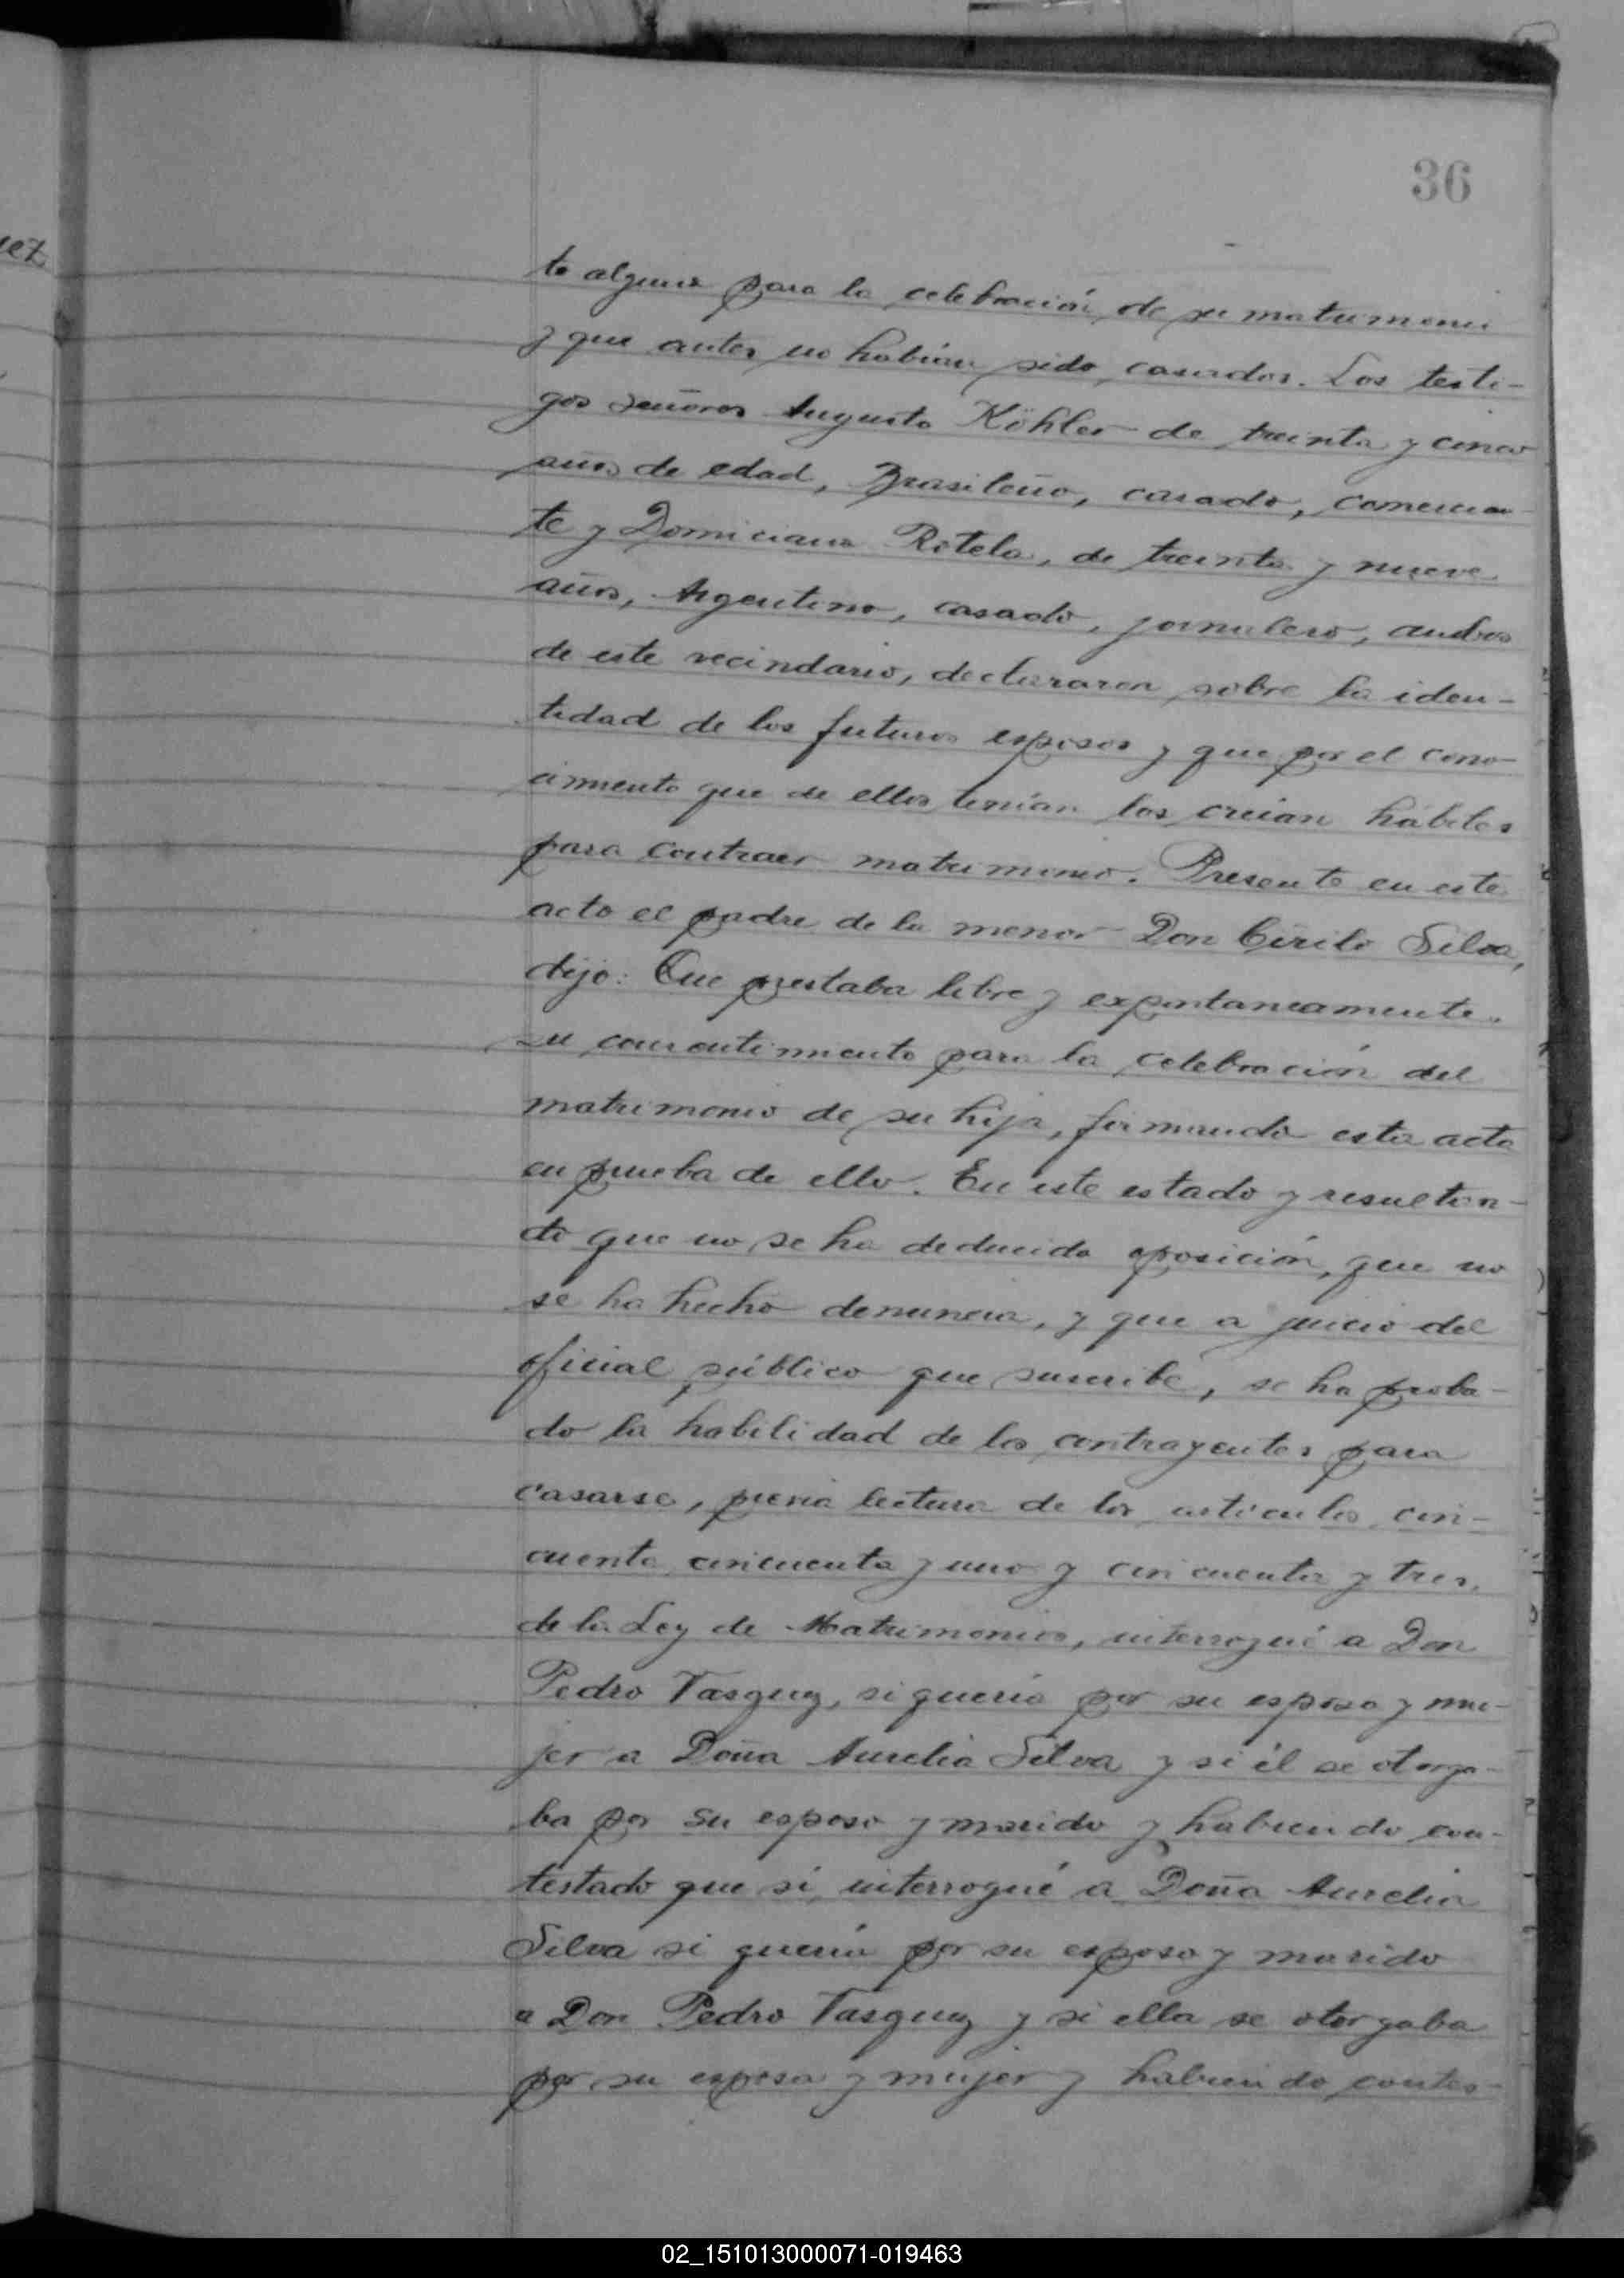 36
uez
to alguno para la celebración de su matrimonio
y que antes no habían sido casados. Los testi-
gos señores Augusto Köhler de treinta y cinco
años de edad, Brasileño, casado, comercian-
te y Domiciano Rotela, de treinta y nueve
años, Argentino, casado, jornalero, ambos
de este vecindario, declararon sobre la iden-
tidad de los futuros esposos y que por el cono-
cimiento que de ellos tenían los creían hábiles
para contraer matrimonio. Presente en este
acto el padre de la menor Don Cirilo Silva,
dijo: Que prestaba libre y expontaneamente
su consentimiento para la celebración del
matrimonio de su hija, firmando esta acta
en prueba de ello. En este estado y resultan-
do que no se ha deducido oposición, que no
se ha hecho denuncia, y que a juicio del
oficial público que suscribe, se ha proba-
do la habilidad de los contrayentes para
casarse, previa lectura de los artículos cin-
cuenta, cincuenta y uno y cincuenta y tres,
de la Ley de Matrimonios, interrogué a Don
Pedro Vasquez, si quería por su esposa y mu-
jer a Doña Aurelia Silva y si él se otorga-
ba por su esposo y marido y habiendo con-
testado que sí, interrogué a Doña Aurelia
Silva si quería por su esposo y marido
a Don Pedro Vasquez y si ella se otorgaba
por su esposa y mujer y habiendo contes-
02_151013000071-019463